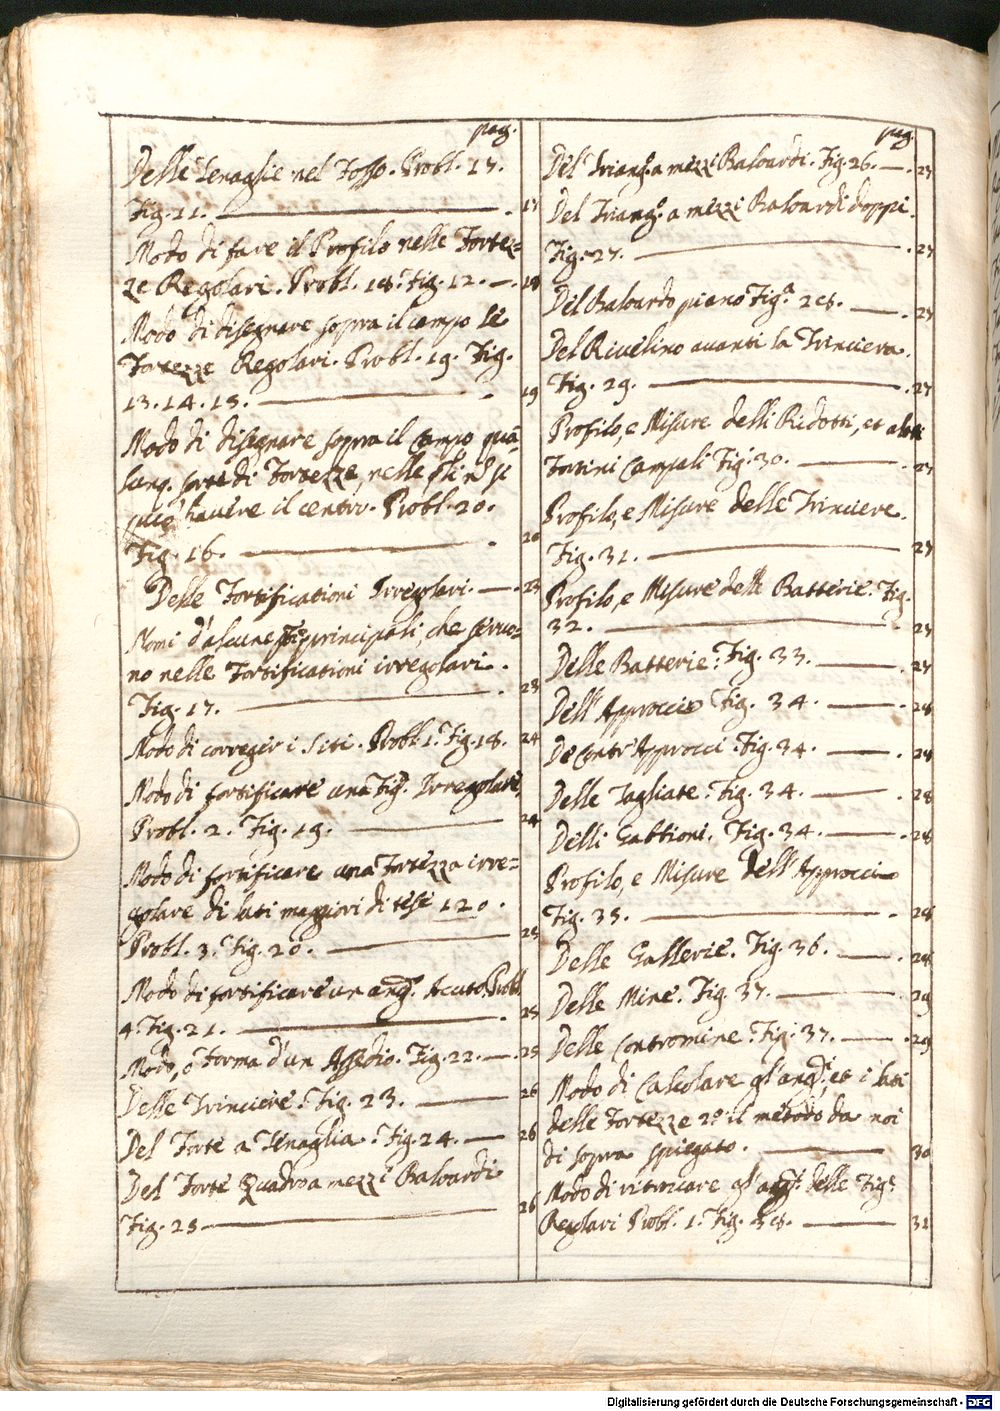 pag.
Delle Tenaglie nel Fosso. Probl. 17.
Fig. 11. 17
Modo di fare il Profilo nelle Fortez=
ze Regolari. Probl. 18. Fig. 12. 18
Modo di disegnare sopra il campo le
Fortezze Regolari. Probl. 19. Fig.
13. 14. 15. 19
Modo di disegnare sopra il Campo qua
lunq. sorte di Fortezze, nelle si
può havere il centro. Probl. 20.
Fig. 16. 20
Delle Fortificationi Irregolari. 23
Nomi d'alcune principali, che servo=
no nelle Fortificationi irregolari.
Fig. 17. 23
Modo di correger i Siti. Probl. 1. Fig. 18. 24
Modo di fortificare una Fig. Irregolare.
Probl. 2. Fig. 19. 24
Modo di fortificare una Fortezza irre=
golare di lati maggiori di tese 120.
Probl. 3. Fig. 20. 25
Modo di fortificare un ang. Acuto. Probl.
4. Fig. 21. 25
Modo, ò Forma d'un Assedio. Fig. 22. 25
Delle Trinciere. Fig. 23. 26
Del Forte a Tenaglia. Fig. 24. 26
Del Forte Quadro a mezzi Baloardi
Fig. 25 26
pag.
Del Triang.o a mezzi Baloardi. Fig. 26. 27
Del Triang.o a mezzi Baloardi doppi.
Fig. 27. 27
Del Baloardo piano Fig.a 28. 27
Del Rivelino avanti la Trinciera.
Fig. 29. 27
Profilo, e Misure delli Ridotti, et altri
Fortini Campali Fig. 30. 27
Profilo, e Misure delle Trinciere.
Fig. 31. 27
Profilo, e Misure delle Batterie. Fig.
32. 27
Delle Batterie. Fig. 33. 27
Dell'Approccio Fig. 34. 28
De Contr'Approcci. Fig. 34. 28
Delle Tagliate. Fig. 34. 28
Delli Gabbioni. Fig. 34. 28
Profilo, e Misure dell'Approccio
Fig. 35. 28
Delle Gallerie. Fig. 36. 28
Delle Mine. Fig. 37. 29
Delle Contromine. Fig. 37. 29
Modo di Calcolare gl'ang.i et i lati
delle Fortezze 2.o il metodo da noi
di sopra spiegato. 30
Modo di ritrovare gl'ang.i delle Fig.
Regolari Probl. 1. Fig. 38. 31
Digitalisierung gefördert durch die Deutsche Forschungsgemeinschaft - DFG